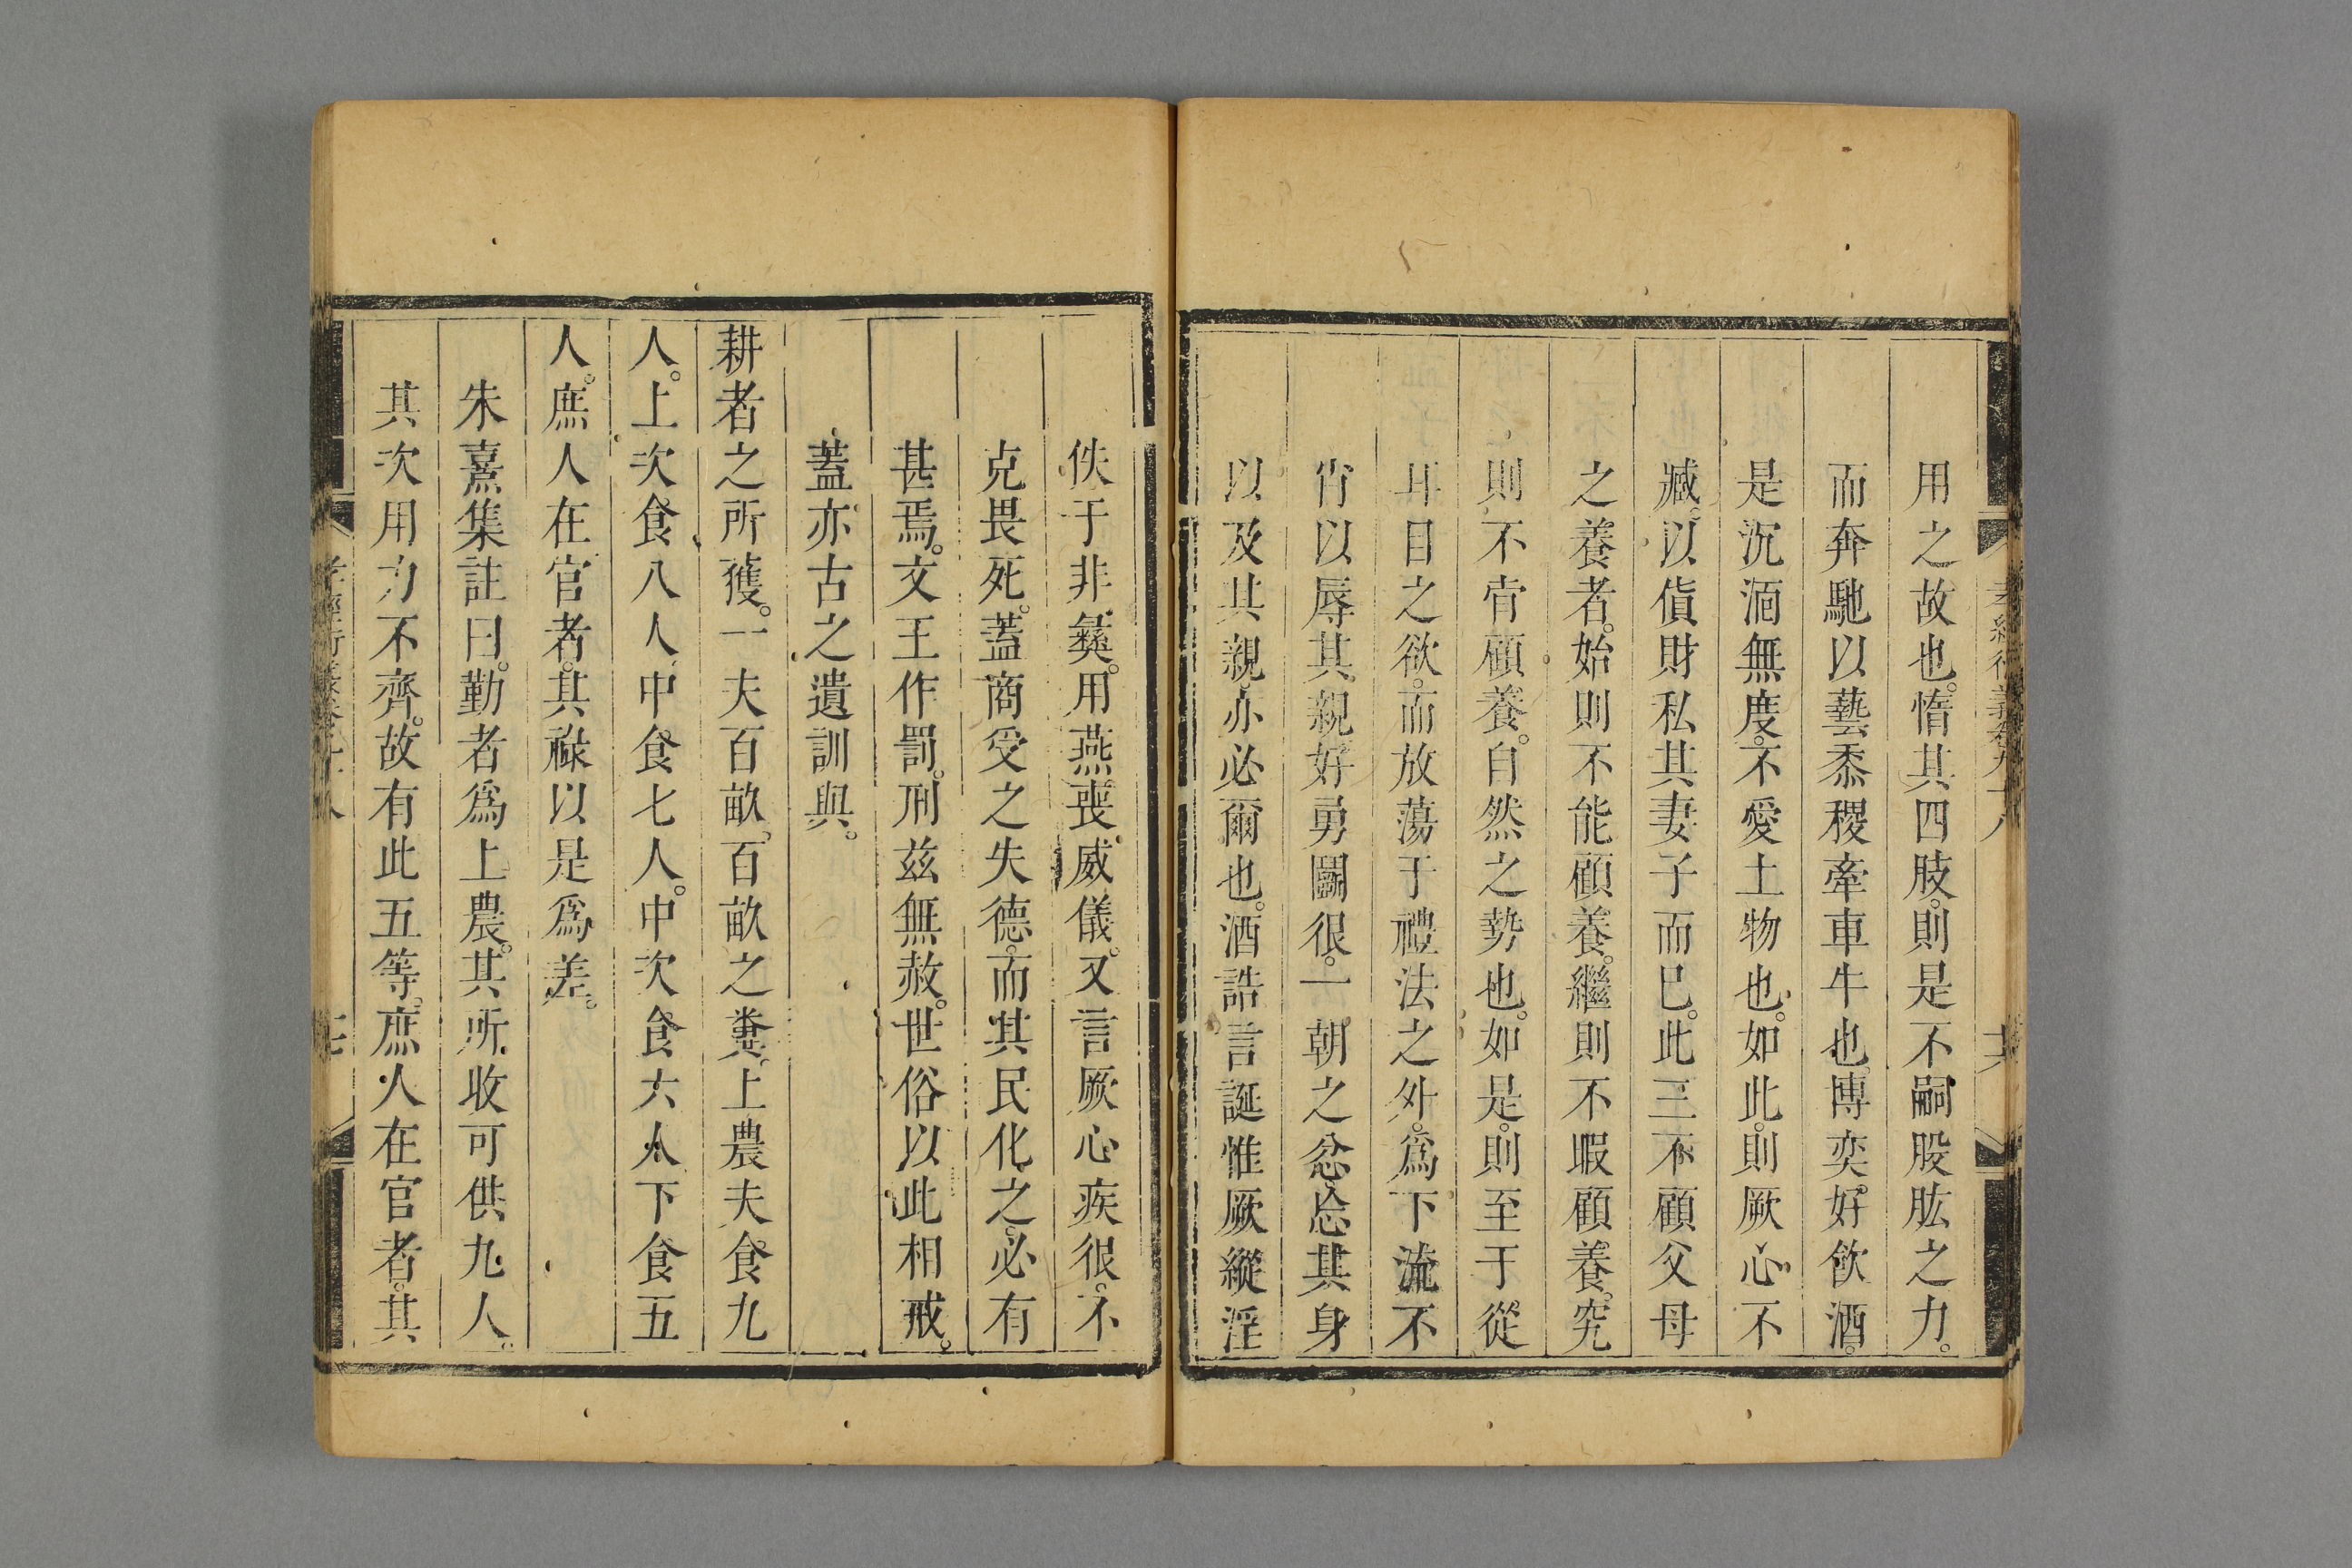 用之故也。惰其四肢。則是不嗣股肱之力。
而奔馳以藝黍稷牽車牛也。博奕。好飲酒。
是沉湎無度。不愛土物也。如此。則厥心不
臧。以貨財私其妻子而已。此三不顧父母
之養者。始則不能顧養。繼則不暇顧養。究
則不肯顧養。自然之勢也。如是。則至于從
耳目之欲。而放蕩于禮法之外。爲下流不
肖以辱其親。好勇鬭很。一朝之忿忘其身
以及其親。亦必爾也。酒誥言誕惟厥縱淫
佚于非彝。用燕。喪威儀。又言厥心疾很。不
克畏死。蓋商受之失德。而其民化之。必有
甚焉。文王作罰。刑茲無赦。世俗以此相戒。
蓋亦古之遺訓與。
耕者之所獲。一夫百畝。百畝之糞。上農夫食九
人。上次食八人。中食七人。中次食六人。下食五
人。庶人在官者。其祿以是爲差。
朱熹集註曰。勤者爲上農。其所收可供九人。
其次用力不齊。故有此五等。庶人在官者。其